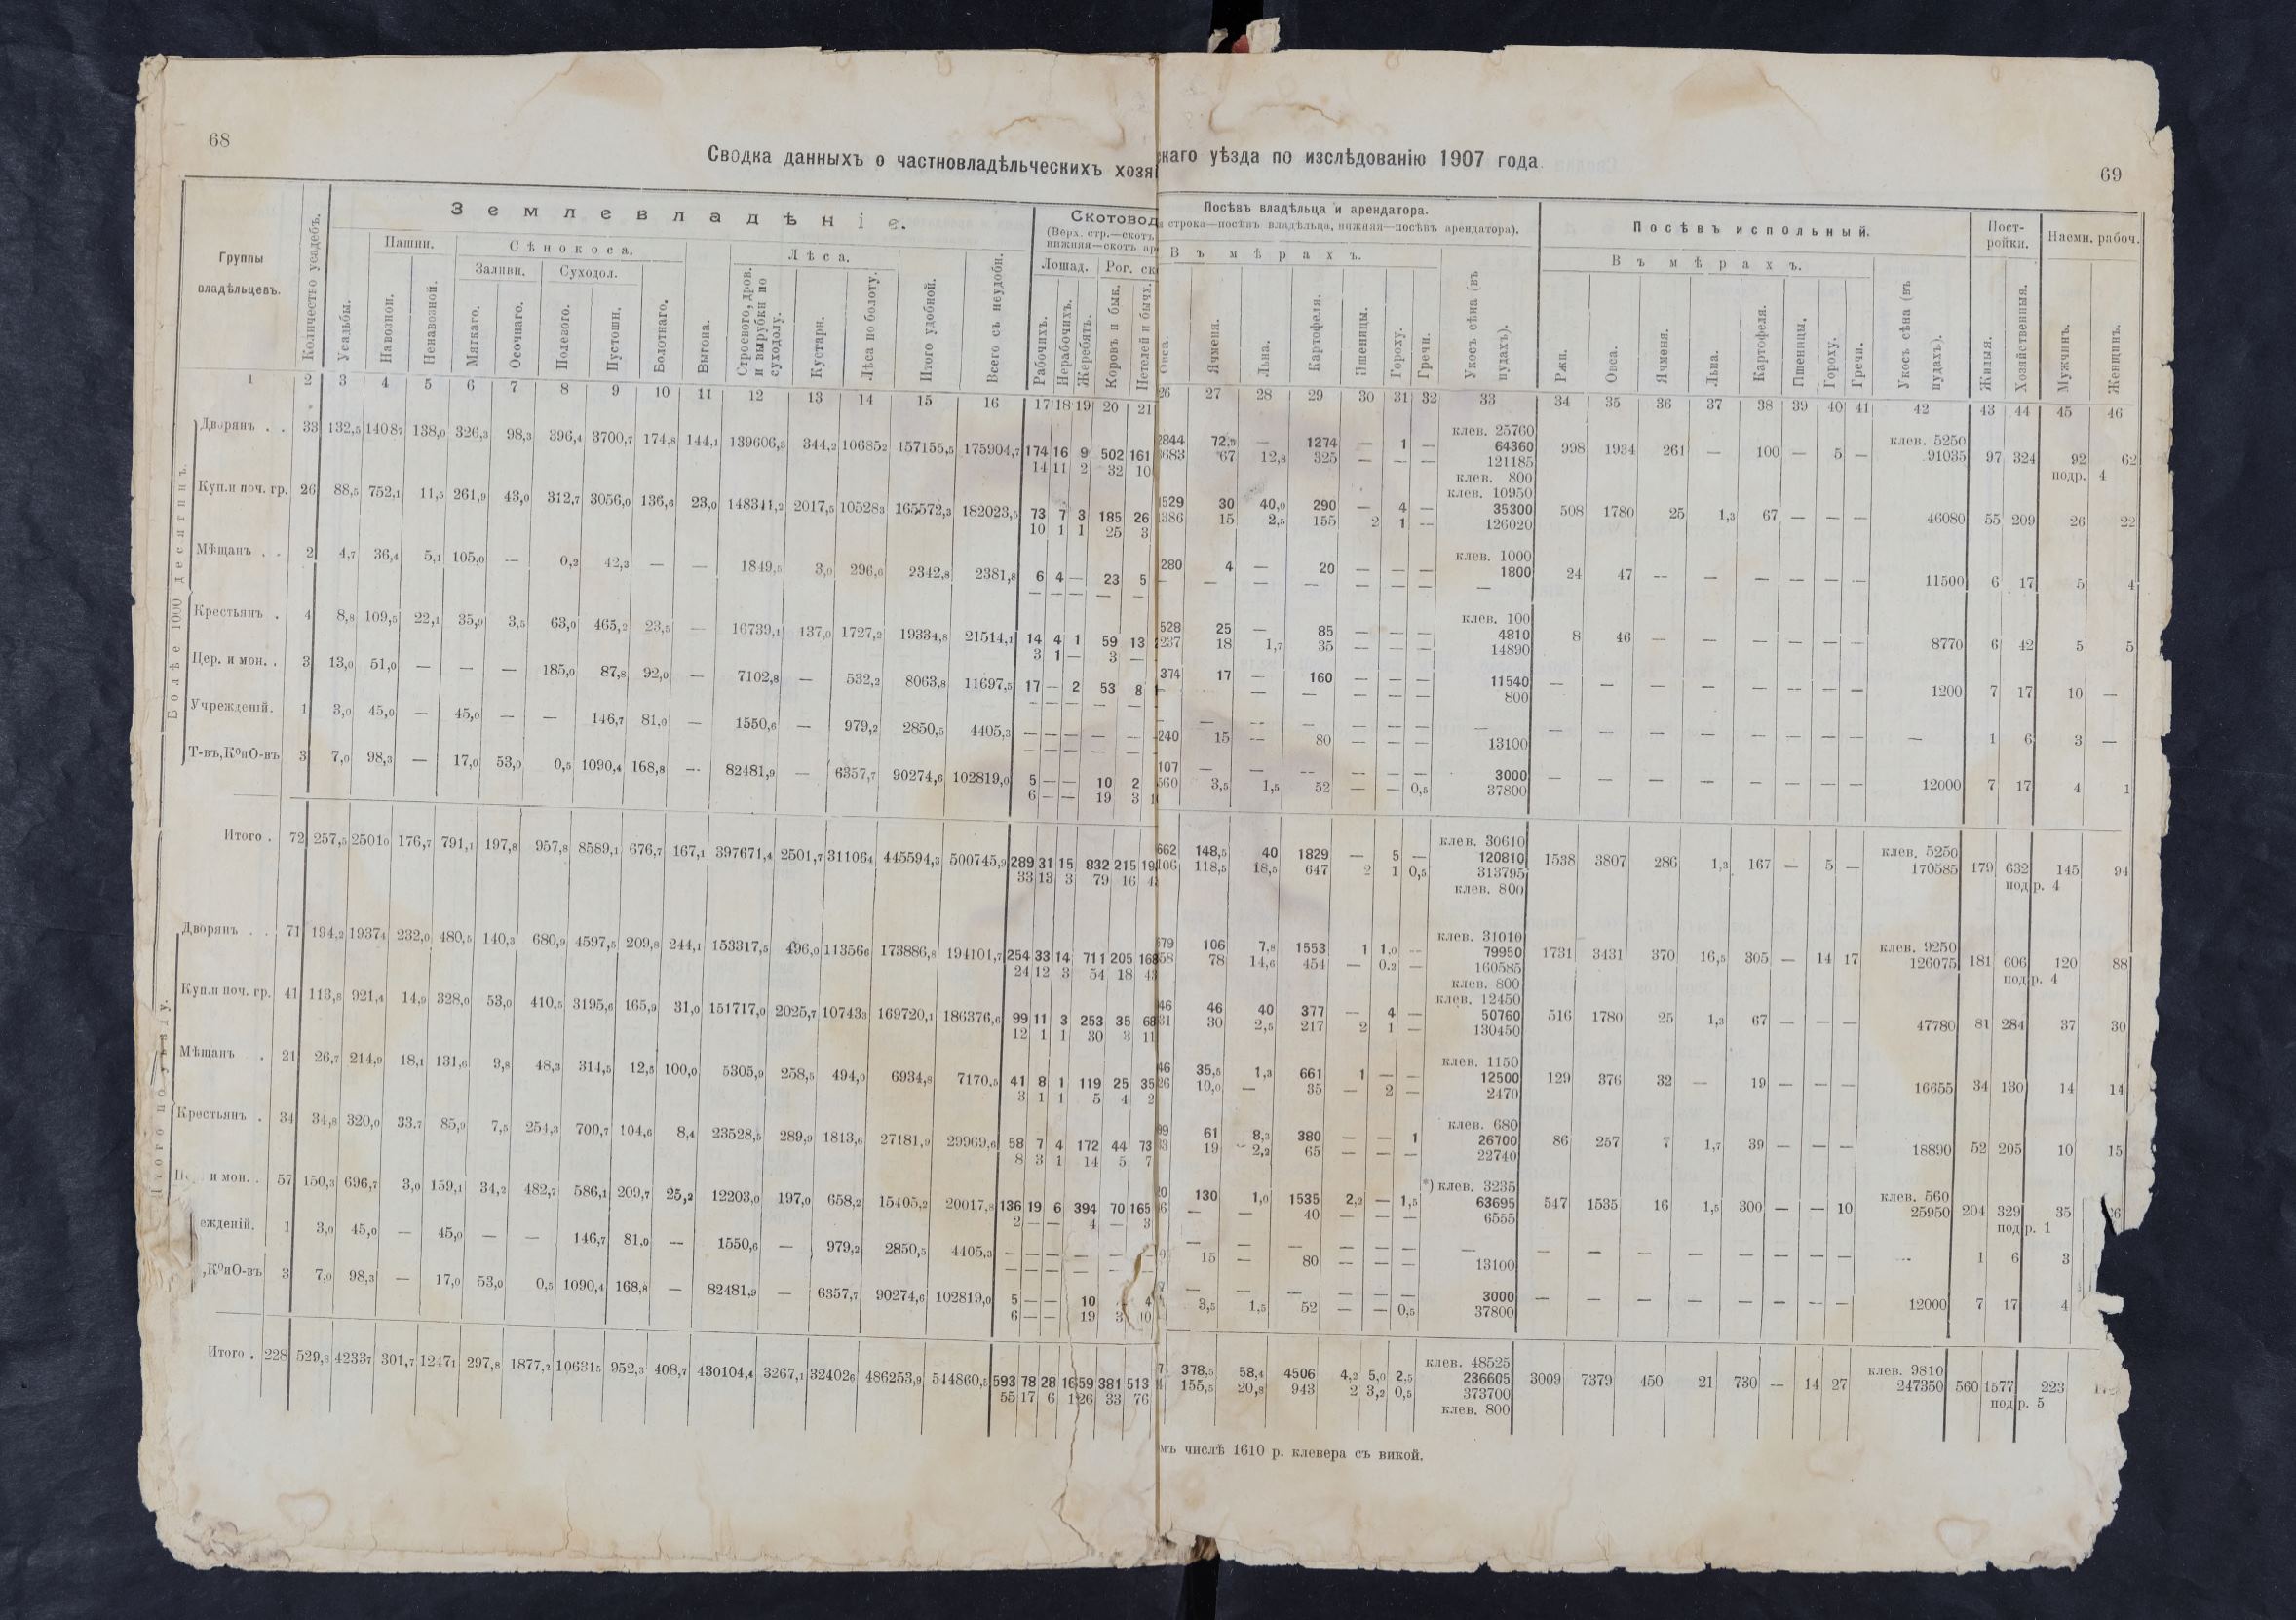 68
Сводка данныхъ о частновладѣльческихъ хозя
каго уѣзда по изслѣдованію 1907 года
69
Группы владѣльцевъ.
Количество усадебъ.
Землевладѣніе.
Усадьбы.
Пашни.
Навозной.
Ненавозной.
Сѣнокоса.
Заливн.
Мягкаго.
Осочнаго.
Суходол.
Полевого.
Пустоши.
Болотнаго.
Выгона.
Лѣса.
Строевого, дров. и вырубки по суходолу.
Кустарн.
Лѣса по болоту.
Итого удобной.
Всего съ неудобн.
Скотовод
(Верх. стр.—скотъ
нижняя—скотъ ар
Лошад.
Рабочихъ.
Нерабочихъ.
Жеребятъ.
Рог. ск
Коровъ и бык.
Нетелей и бычк.
Посѣвъ владѣльца и арендатора.
строка—посѣвъ владѣльца, нижняя—посѣвъ арендатора).
Въ мѣрахъ.
Овса.
Ячменя.
Льна.
Картофеля.
Пшеницы.
Гороху.
Гречи.
Укосъ сѣна (въ пудахъ).
Посѣвъ испольный.
Въ мѣрахъ.
Ржи.
Овса.
Ячменя.
Льна.
Картофеля.
Пшеницы.
Гороху.
Гречи.
Укосъ сѣна (въ пудахъ).
Пост-
ройки.
Жилыя.
Хозяйственныя.
Наемн. рабоч.
Мужчинъ.
Женщинъ.
1 2 3 4 5 6 7 8 9 10 11 12 13 14 15 16 17 18 19 20 21
26 27 28 29 30 31 32 33 34 35 36 37 38 39 40 41 42 43 44 45 46
Болѣе 1000 десятинъ.
Дворянъ . . 33 132,5 14087 138,0 326,3 98,3 396,4 3700,7 174,8 144,1 139606,3 344,2 106852 157155,5 175904,7 174 16 9 502 161
14 11 2 32 10
клев. 25760 клев. 5250
2844 72,5 — 1274 — 1 — 64360 998 1934 261 — 100 — 5 — 91035 97 324 92 62
683 67 12,8 325 — — — 121185 подр. 4
клев. 800
Куп.и поч. гр. 26 88,5 752,1 11,5 261,9 43,0 312,7 3056,0 136,6 23,0 148341,2 2017,5 105283 165572,3 182023,5 73 7 3 185 26
10 1 1 25 3
клев. 10950
1529 30 40,0 290 — 4 — 35300 508 1780 25 1,3 67 — — — 46080 55 209 26 22
386 15 2,5 155 2 1 — 126020
Мѣщанъ . . 2 4,7 36,4 5,1 105,0 — 0,2 42,3 — — 1849,5 3,0 296,6 2342,8 2381,8 6 4 — 23 5
— — — — —
клев. 1000
280 4 — 20 — — — 1800 24 47 — — — — — — 11500 6 17 5 4
— — — — — — — —
Крестьянъ . 4 8,8 109,5 22,1 35,9 3,5 63,0 465,2 23,5 — 16739,1 137,0 1727,2 19334,8 21514,1 14 4 1 59 13
3 1 — 3 —
клев. 100
528 25 — 85 — — — 4810 8 46 — — — — — — 8770 6 42 5 5
237 18 1,7 35 — — — 14890
Цер. и мон. . 3 13,0 51,0 — — — 185,0 87,8 92,0 — 7102,8 — 532,2 8063,8 11697,5 17 — 2 53 8
— — — — —
374 17 — 160 — — — 11540 — — — — — — — — 1200 7 17 10 —
— — — — — — 800
Учрежденій. 1 3,0 45,0 — 45,0 — — 146,7 81,0 — 1550,6 — 979,2 2850,5 4405,3 — — — — —
— — — — —
— — — — — — — —
240 15 — 80 — — — 13100 — — — — — — — — — 1 6 3 —
Т-въ,КоиО-въ 3 7,0 98,3 — 17,0 53,0 0,5 1090,4 168,8 — 82481,9 — 6357,7 90274,6 102819,0 5 — — 10 2
6 — — 19 3
107 — — — — — — 3000 — — — — — — — — 12000 7 17 4 1
560 3,5 1,5 52 — — 0,5 37800
Итого . 72 257,5 25010 176,7 791,1 197,8 957,8 8589,1 676,7 167,1 397671,4 2501,7 311064 445594,3 500745,9 289 31 15 832 215
33 13 3 79 16
клев. 30610 клев. 5250
662 148,5 40 1829 — 5 — 120810 1538 3807 286 1,3 167 — 5 — 170585 179 632 145 94
106 118,5 18,5 647 2 1 0,5 313795 подр. 4
клев. 800
Итого по уѣзду.
Дворянъ . . 71 194,2 19374 232,0 480,5 140,3 680,9 4597,5 209,8 244,1 153317,5 496,0 113566 173886,8 194101,7 254 33 14 711 205 168
24 12 3 54 18
клев. 31010 клев. 9250
679 106 7,8 1553 1 1,0 — 79950 1731 3431 370 16,5 305 — 14 17 126075 181 606 120 88
58 78 14,6 454 — 0,2 — 160585 подр. 4
клев. 800
Куп.и поч. гр. 41 113,8 921,4 14,9 328,0 53,0 410,5 3195,6 165,9 31,0 151717,0 2025,7 107433 169720,1 186376,6 99 11 3 253 35 68
12 1 1 30 3 11
клев. 12450
46 46 40 377 — 4 — 50760 516 1780 25 1,3 67 — — — 47780 81 284 37 30
31 30 2,5 217 2 1 — 130450
Мѣщанъ . 21 26,7 214,9 18,1 131,6 9,8 48,3 314,5 12,5 100,0 5305,9 258,5 494,0 6934,8 7170,5 41 8 1 119 25 35
3 1 1 5 4 2
клев. 1150
46 35,5 1,3 661 1 — — 12500 129 376 32 — 19 — — — 16655 34 130 14 14
26 10,0 — 35 — 2 — 2470
Крестьянъ . 34 34,8 320,0 33.7 85,9 7,5 254,3 700,7 104,6 8,4 23528,5 289,9 1813,6 27181,9 29969,6 58 7 4 172 44 73
8 3 1 14 5 7
клев. 680
61 8,3 380 — — 1 26700 86 257 7 1,7 39 — — — 18890 52 205 10 15
19 2,2 65 — — — 22740
и мон. . 57 150,3 696,7 3,0 159,1 34,2 482,7 586,1 209,7 25,2 12203,0 197,0 658,2 15405,2 20017,8 136 19 6 394 70 165
2 — — 4 — 3
*) клев. 3235 клев. 560
130 1,0 1535 2,2 — 1,5 63695 547 1535 16 1,5 300 — — 10 25950 204 329 35
— — 40 — — — 6555 подр. 1
ежденій. 1 3,0 45,0 — 45,0 — — 146,7 81,0 — 1550,6 — 979,2 2850,5 4405,3 — — — — — —
— — — — —
— — — — — — —
15 — 80 — — — 13100 — — — — — — — — — 1 6 3
,КоиО-въ 3 7,0 98,3 — 17,0 53,0 0,5 1090,4 168,8 — 82481,9 — 6357,7 90274,6 102819,0 5 — — 10 4
6 — — 19 3
— — — — — — 3000 — — — — — — — — 12000 7 17 4
3,5 1,5 52 — — 0,5 37800
Итого . 228 529,8 42337 301,7 12471 297,8 1877,2 106315 952,3 408,7 430104,4 3267,1 324026 486253,9 544860,5 593 78 28 1659 381 513
55 17 6 126 33 76
клев. 48525 клев. 9810
378,5 58,4 4506 4,2 5,0 2.5 236605 3009 7379 450 21 730 — 14 27 247350 560 1577 223
155,5 20,8 943 2 3,2 0,5 373700 подр. 5
клев. 800
мъ числѣ 1610 р. клевера съ викой.